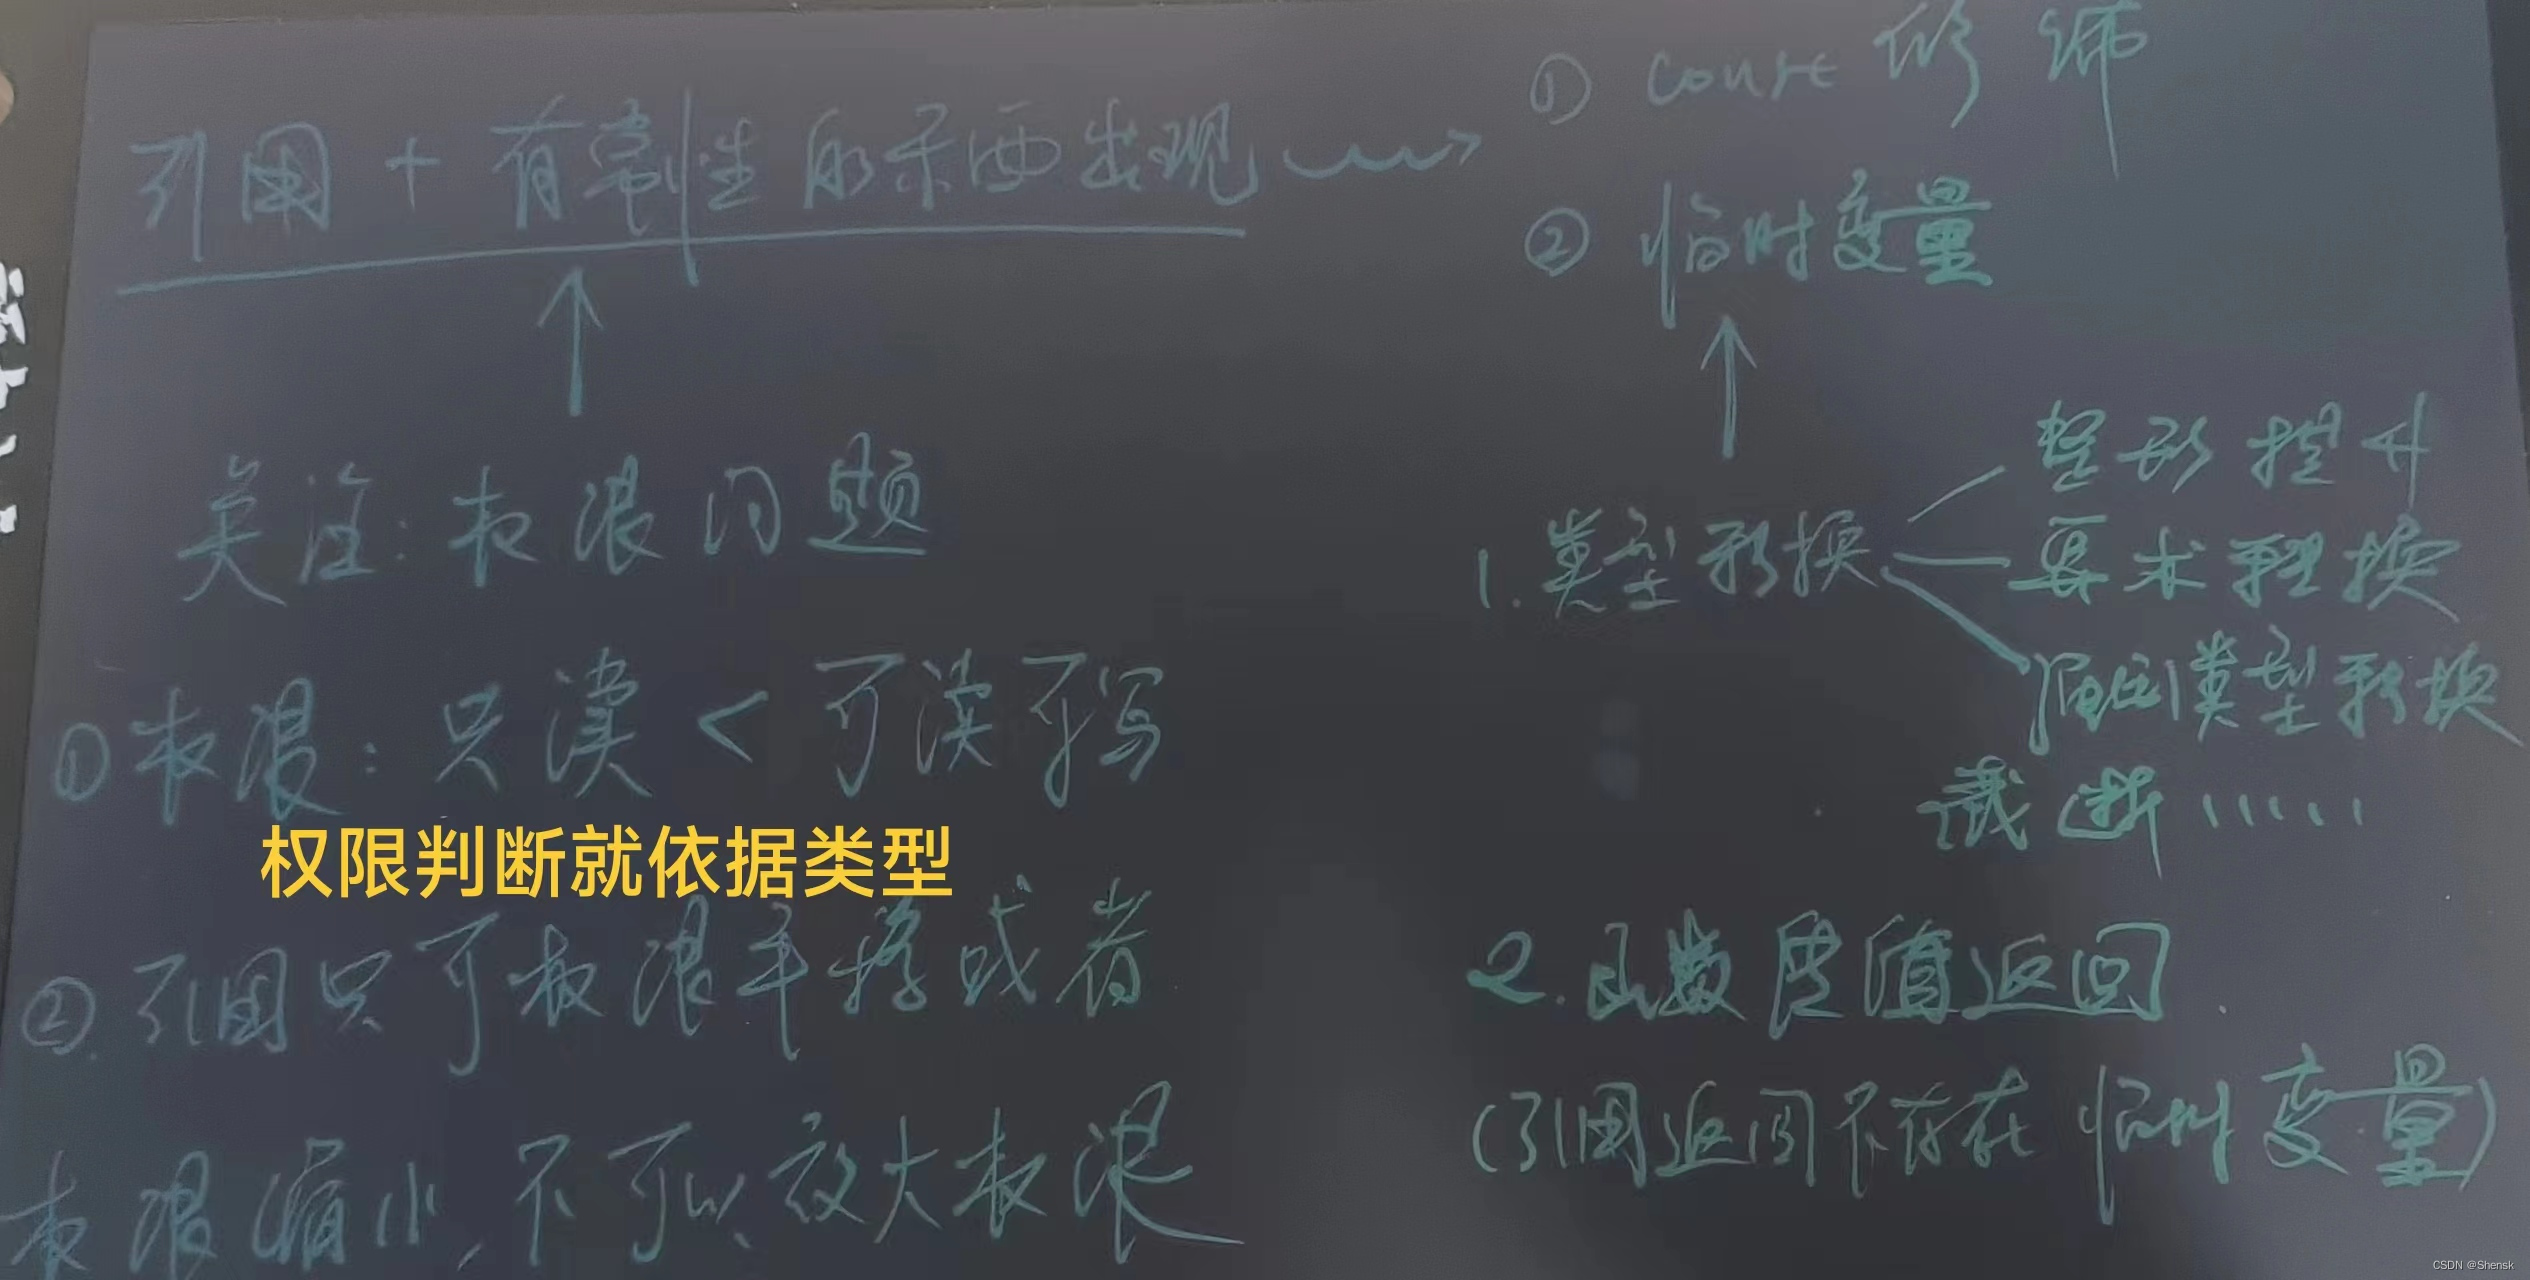 引用 + 有常性的东西出现
① const 修饰
② 临时变量
关注：权限问题
①权限：只读 < 可读可写
权限判断就依据类型
②.引用只可权限平移或者
权限缩小，不可以放大权限
1. 类型转换
整形提升
算术转换
强制类型转换
截断……
2. 函数传值返回.
(引用返回不存在临时变量)
CSDN @Shensk